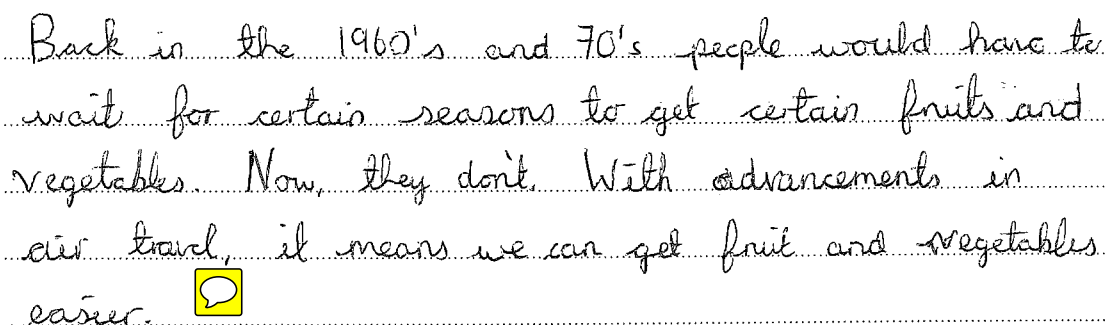 Back in the 1960's and 70's people would have to
wait for certain seasons to get certain fruits and
vegetables. Now, they don't. With advancements in
air travel, it means we can get fruit and vegetables
easier.